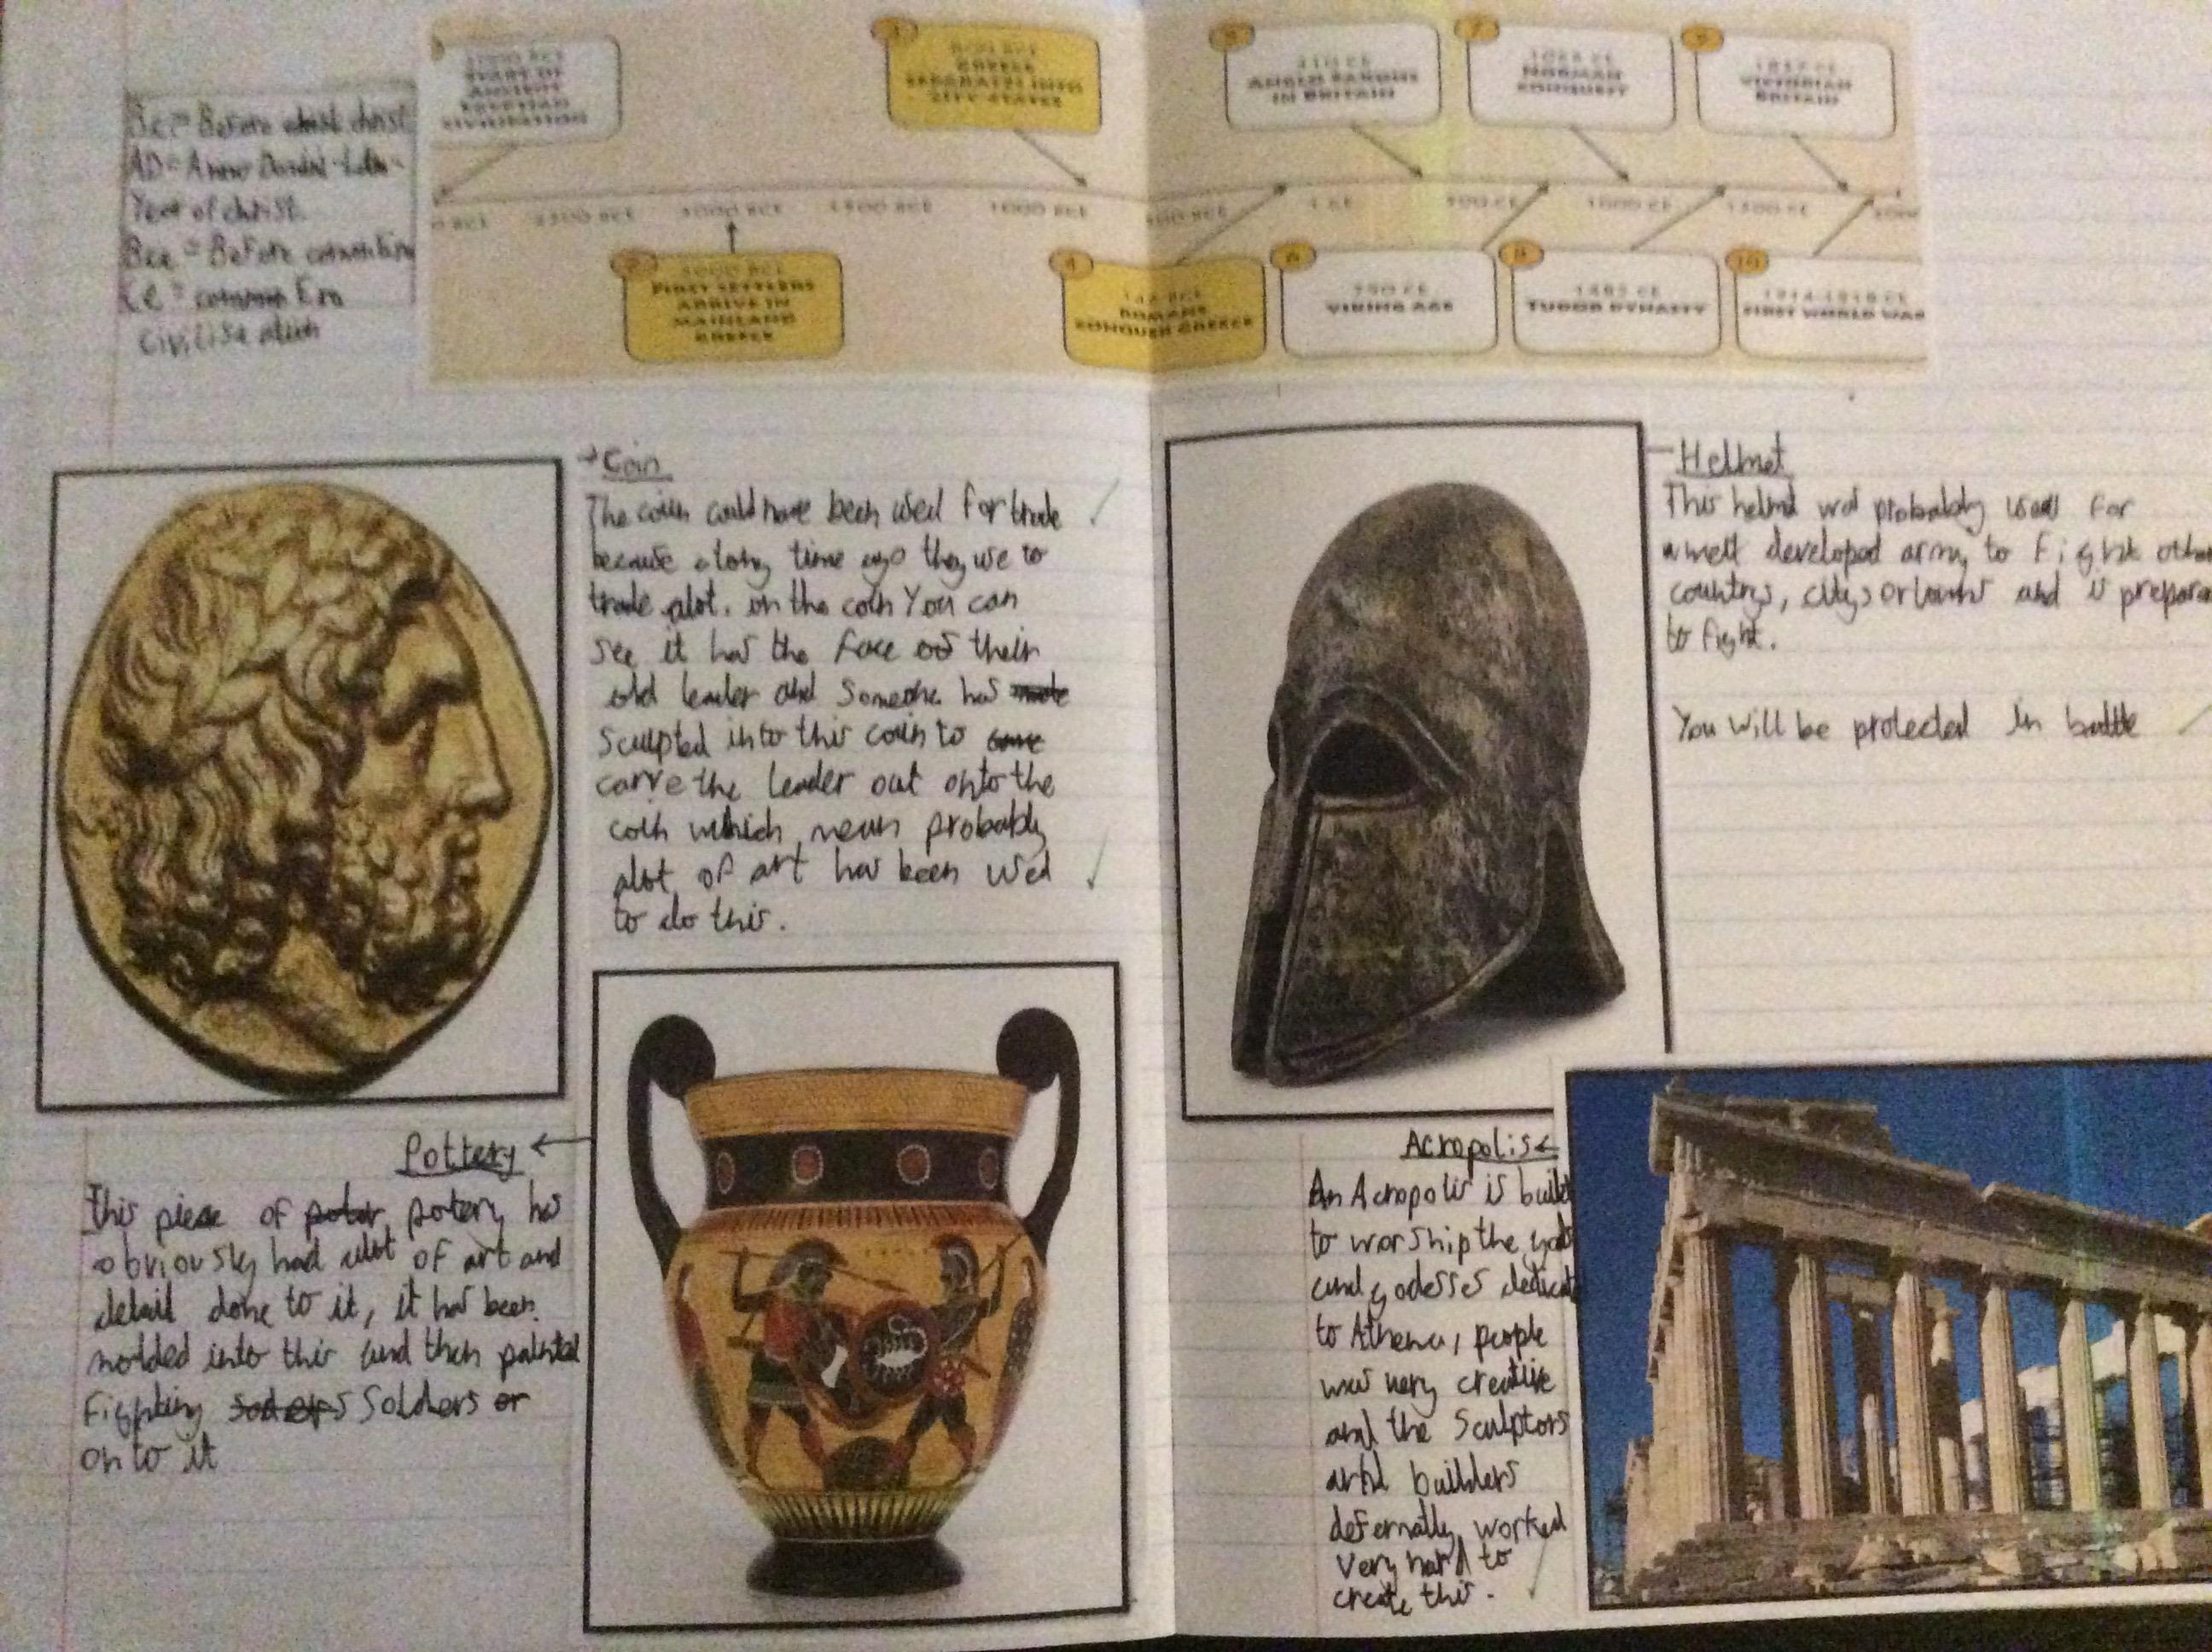 Bc = Before christ
AD = Anno Domini - Latin -
Year of christ.
Bce = Before
Ce = common Era
civilisation
START OF
ANCIENT
EGYPTIAN
CIVILISATION
3
GREECE
SEPARATES INTO
CITY-STATES
5
410 CE
ANGLO SAXONS
IN BRITAIN
7
1066 CE
NORMAN
CONQUEST
9
1837 CE
VICTORIAN
BRITAIN
0 BCE 2500 BCE 1500 BCE 1000 BCE 500 BCE 1 CE 500 CE 1000 CE 1500 CE
2
FIRST SETTLERS
ARRIVE IN
MAINLAND
GREECE
4
146 BCE
ROMANS
CONQUER GREECE
6
790 CE
VIKING AGE
8
1485 CE
TUDOR DYNASTY
10
1914-1918 CE
FIRST WORLD WAR
Coin
The coin could have been used for trade
because along time ago they use to
trade alot. on the coin You can
see it has the face of their
old leader and someone has
sculpted into this coin to
carve the leader out onto the
coin which mean probably
alot of art has been used
to do this.
Helmet
This helmet was probably used for
a well developed army to fight other
countrys, citys or towns and is prepare
to fight.
You will be protected in battle
Pottery
This piece of potery has
obviously had alot of art and
detail done to it, it has been
molded into this and then painted
fighting Soldiers
on to it
Acropolis
An Acropolis is built
to worship the gods
and godesses dedicat
to Athena, people
was very creative
and the sculptors
and builders
defernatly worked
very hard to
create this.